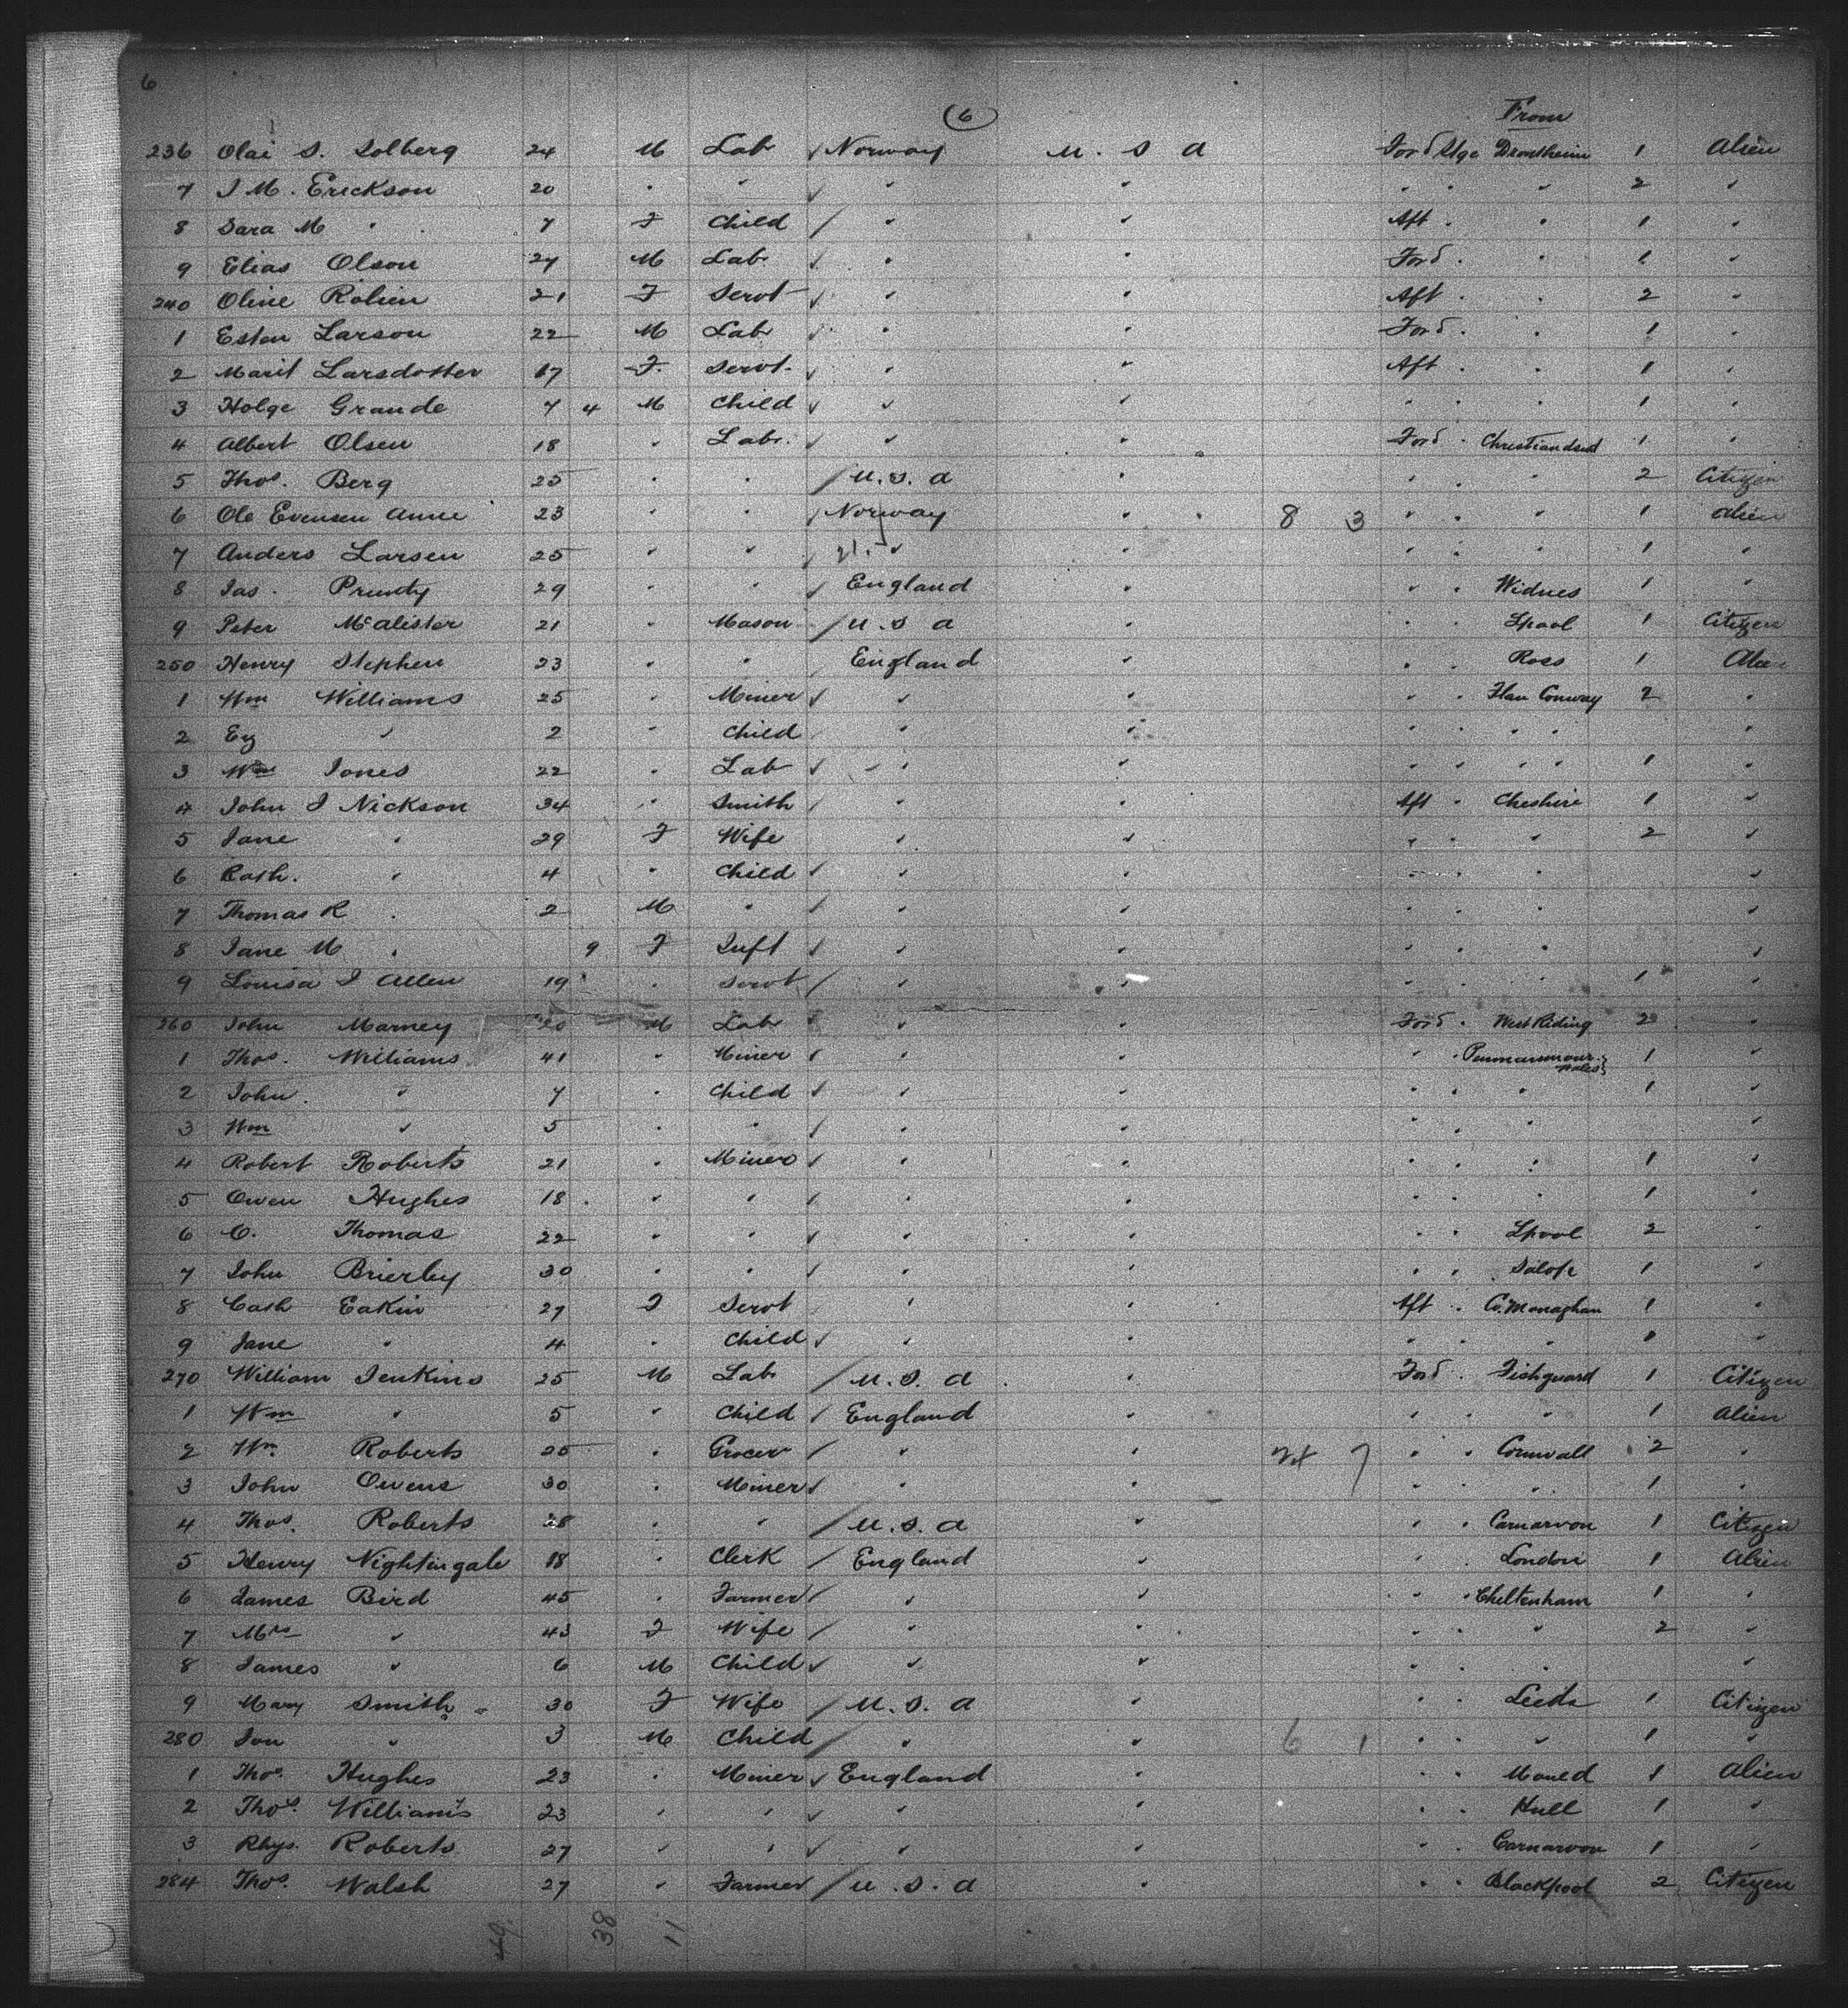 6
(6)
From
236 Olai S. Solberg 24 M Lab Norway U. S A For'd Stge Drontheim 1 Alien
7 J M. Erickson 20 " " " " " " " 2 "
8 Sara M " 7 F Child " " Aft " " 1 "
9 Elias Olson 27 M Lab " " For'd " " 1 "
240 Oline 21 F Servt " " Aft " " 2 "
1 Esten Larson 22 M Lab " " For'd " " 1 "
2 Marit Larsdotter 17 F Servt " " Aft " " 1 "
3 Holge Grande 7 4 M Child " " " " " 1 "
4 Albert Olsen 18 " Lab. " " For'd " Christiandsd 1 "
5 Thos. Berg 25 " " U. S. A " " " " 2 Citizen
6 Ole Evensen 23 " " Norway " 8 3 " " " 1 Alien
7 Anders Larsen 25 " " " " " " " 1 "
8 Jas. Prunty 29 " " England " " " Widnes 1 "
9 Peter McAlister 21 " Mason U. S A " " " Lpool 1 Citizen
250 Henry Stephen 23 " " England " " " Ross 1 Alien
1 Wm Williams 25 " Miner " " " " Conway 2 "
2 " 2 " Child " " " " " "
3 Wm Jones 22 " Lab " " " " " " 1 "
4 John J Nickson 34 " Smith " " Aft " Cheshire 1 "
5 Jane " 29 F Wife " " " " " 2 "
6 Cath. " 4 " Child " " " " " "
7 Thomas R " 2 M " " " " " " "
8 Jane M " 9 F Inft " " " " " "
9 Louisa J Allen 19 " Servt " " " " " 1 "
260 John Marney 20 M Lab " " For'd " West Riding 2 "
1 Thos. Williams 41 " Miner " " " " Wales 1 "
2 John. " 7 " Child " " " " " 1 "
3 Wm " 5 " " " " " " " "
4 Robert Roberts 21 " Miner " " " " " 1 "
5 Owen Hughes 18 " " " " " " " 1 "
6 O. Thomas 22 " " " " " " Lpool 2 "
7 John Brierley 30 " " " " " " Salop 1 "
8 Cath Eakin 27 F Servt " " Aft " Co. Monaghan 1 "
9 Jane " 4 " Child " " " " " 1 "
270 William Jenkins 25 M Lab U. S. A " For'd " Fishguard 1 Citizen
1 Wm " 5 " Child England " " " " 1 Alien
2 Wm. Roberts 25 " Grocer " " 7 " " Cornwall 2 "
3 John Owens 30 " Miner " " " " " 1 "
4 Thos. Roberts 28 " " U. S. A " " " Carnarvon 1 Citizen
5 Henry Nightingale 18 " Clerk England " " " London 1 Alien
6 James Bird 45 " Farmer " " " " Cheltenham 1 "
7 Mrs " 43 F Wife " " " " " 2 "
8 James " 6 M Child " " " " " "
9 Mary Smith " 30 F Wife U. S. A " " " Leeds 1 Citizen
280 Jon " 3 M Child " " 6 1 " " " 1 "
1 Thos. Hughes 23 " Miner England " " " 1 Alien
2 Thos. Williams 23 " " " " " " Hull 1 "
3 Rhys. Roberts 27 " " " " " " Carnarvon 1 "
284 Thos. Walsh 27 " Farmer U. S. A " " " Blackpool 2 Citizen
49. 38 11